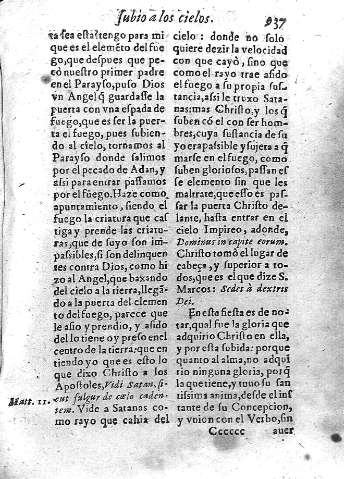 subio a los cielos.
937
ta sea esta) tengo para mi
q̃ es el elemẽto del fue
go, que despues que pe
có nuestro primer padre
en el Parayso, puso Dios
vn Angel q̃ guardasse la
puerta con vna espada de
fuego, que es ser la puer-
ta el fuego, pues subien-
do al cielo, tornamos al
Parayso donde salimos
por el pecado de Adan, y
assi para entrar passamos
por el fuego. Haze como
apuntamiento, siendo el
fuego la criatura que cas
tiga y prende las criatu-
ras, que de suyo son im-
passibles, si son delinquen
tes contra Dios, como hi
zo al Angel, que baxando
del cielo a la tierra, llegã-
do a la puerta del elemen
to del fuego, parece que
le asio y prendio, y asido
del lo tiene y preso en el
centro de la tierra: que en
tiendo yo que es esto lo
que dixo Christo a los
Apostoles, Vidi Satan, si-
Matt. 11.
cut fulgur de cælo caden-
tem. Vide a Satanas co-
mo rayo que cahia del
cielo: donde no solo
quiere dezir la velocidad
con que cayò, sino que
como el rayo trae asido
el fuego a su propia sus-
tancia, assi le truxo Sata-
nas: mas Christo, y los q̃
suben cõ el con ser hom-
bres, cuya sustancia de su
yo era passible y sujeta a q̃
marse en el fuego, como
suben gloriosos, passan es
te elemento sin que les
maltrate, que esso es pas-
sar la puerta Christo de-
lante, hasta entrar en el
cielo Impireo, adonde,
Dominus in capite eorum.
Christo tomò el lugar de
cabeça, y superior a to-
dos, que es el que dize S.
Marcos: Sedet à dextris
Dei.
En esta fiesta es de no-
tar, qual fue la gloria que
adquirio Christo en ella,
y por esta subida: porque
quanto al alma, no adqui
rio ninguna gloria, porq̃
la que tiene, y tuuo su san
tissima anima, desde el ins
tante de su Concepcion,
y vnion con el Verbo, sin
Cccccc
auer